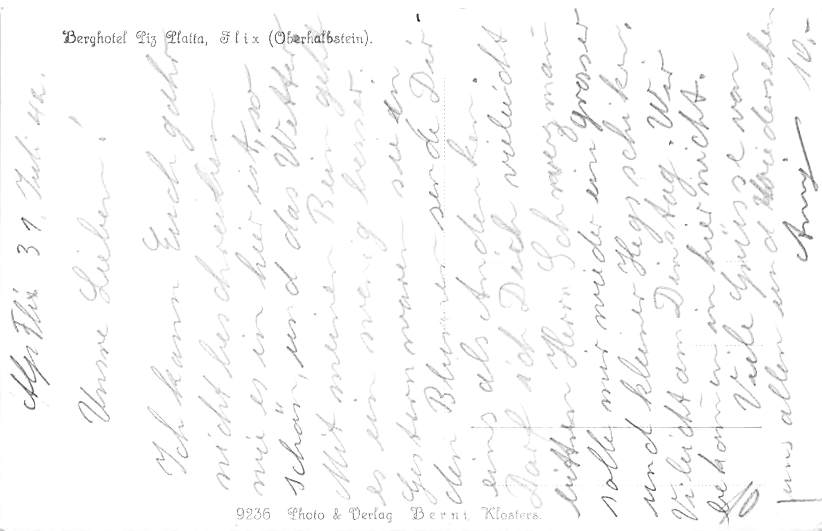 Berghotel Piz Platta, Flix (Oberhalbstein).
Alp Flix 31. Juli 42.
Unsre Lieben!
Ich kann Euch gahr
nicht beschreiben
wie es in hier ist, so
schön, und das Wetter
Mit meinen Bein geht
es ein wenig besser.
Gestern waren sie in
den Blumen sende Dir
eins als Andenken.
Darf ich Dich vieleicht
bitten Herrn Schwerzman
solle mir wieder ein grosser
und kleiner Hegs schiken.
Vileicht am Dinstag. Wir
bekommen in hier nicht.
Viele Grüsse von
uns allen und Wiedersehen
Anny
10.-
9236 Photo & Verlag Berni, Klosters.